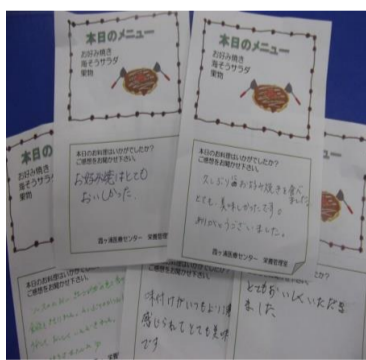 本日のメニュー
お好み焼き
海そうサラダ
果物
本日のお料理はいかがでしたか?
ご感想をお聞かせ下さい。
お好み焼はとても
おいしかった。
本日のメニュー
お好み焼き
海そうサラダ
果物
本日のお料理はいかがでしたか?
ご感想をお聞かせ下さい。
久しぶりお好み焼きを食べ
ました。
とても、美味しかったです。
ありがとうございました。
霞ヶ浦医療センター 栄養管理室
霞ヶ浦医療センター 栄養管理室
本日の
お好み焼き
海そうサラ
果物
本日のお料理はいかがでした
ご感想をお聞かせ下さい。
味付けがいつもより
感じられてとても美味
です
ュー
とてもおいしくいただき
ました。